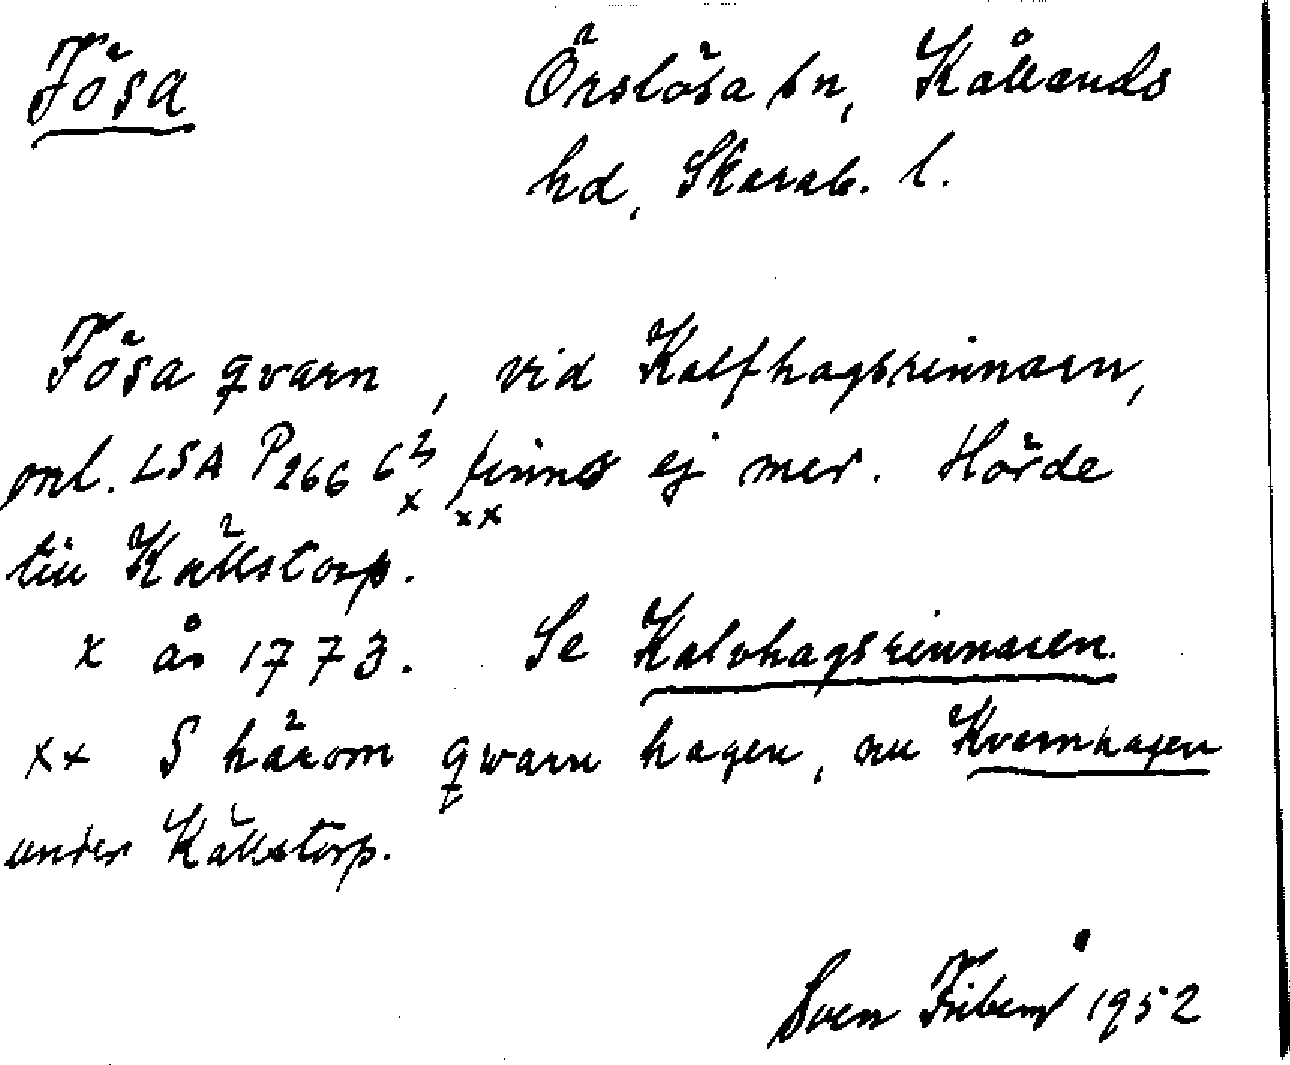 Fösa Örslösa sn, Kållands
hd, Skarab. l.
Fösa qvarn, vid Kalfhagsrinnarn,
enl. LSA P266 6² finnes ej mer. Hörde
x xx
till Källstorp.
x år 1773. Se Kalvhagsrinnaren.
xx S härom qwarn hagen, nu Kvarnhagen
under Källstorp.
Sven 1952